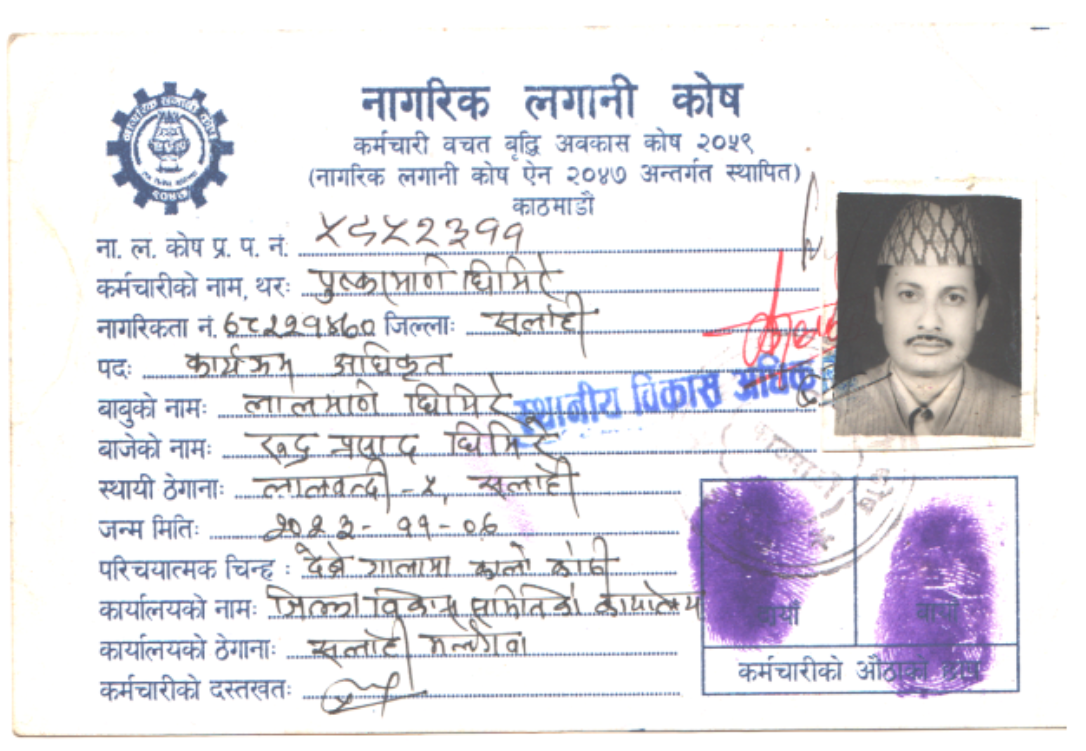 नागरिक लगानी कोष
कर्मचारी वचत बृद्धि अवकास कोष २०५९
(नागरिक लगानी कोष ऐन २०४७ अन्तर्गत स्थापित)
काठमाडौं
२०४७
ना. ल. कोष प्र. प. नं:
कर्मचारीको नाम, थरः घिमिरे
नागरिकता नं. जिल्लाः सर्लाही
पदः कार्यक्रम अधिकृत
बाबुको नामः लालमणि घिमिरे
स्थानीय विकास
बाजेको नामः रुद्र प्रसाद घिमिरे
स्थायी ठेगानाः लालवन्दी - ५, सर्लाही
जन्म मितिः २०२३-११-०६
परिचयात्मक चिन्ह : देब्रे गालामा कालो कोठी
कार्यालयको नामः जिल्ला विकास समितिको कार्यालय
कार्यालयको ठेगानाः सर्लाही मलंगवा
कर्मचारीको दस्तखतः
दायाँ बायाँ
कर्मचारीको औंठाको छाप